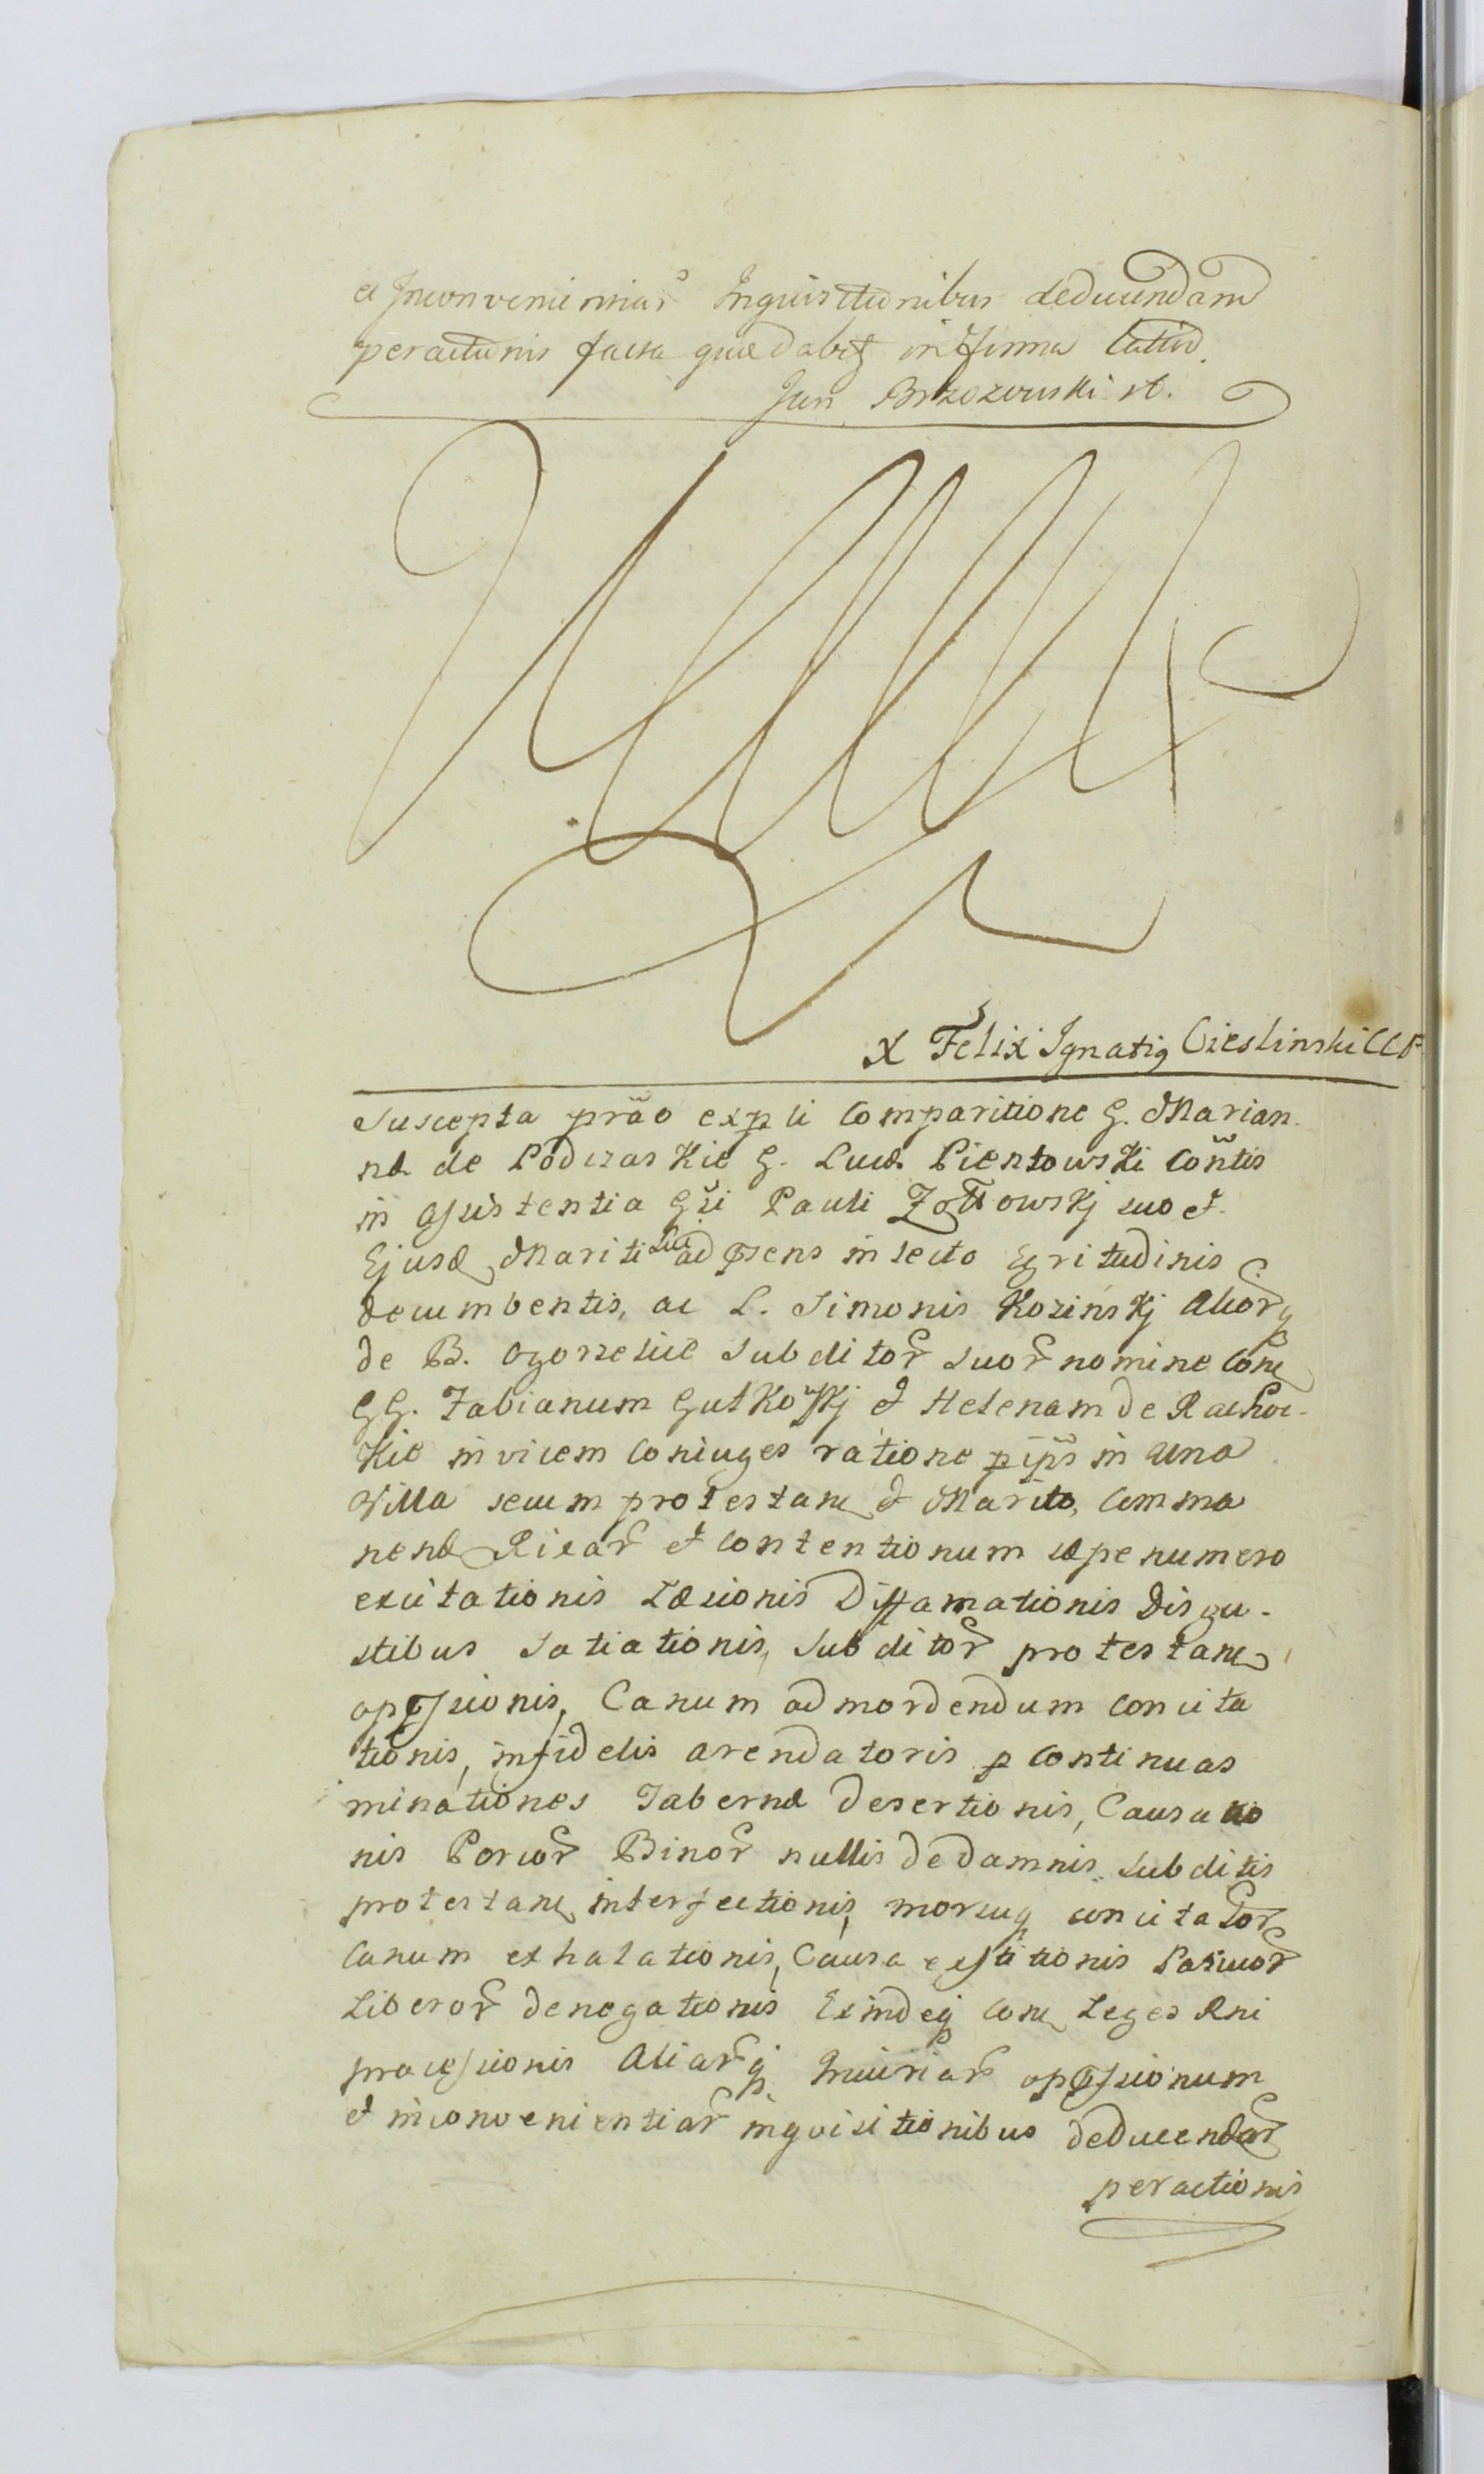 et Inconvenientiar Inquisitionibus deducendam
peractionis facta quæ dabitq in forma
Jan Brzozowski st.
X Felix Ignatiq Cieslinski CCP
Suscepta prão exp li Comparitione G. Marian
næ de Podczaskie G. Lucæ Pientowski Contis
in assistentia Gsi Pauli Zołtowskj suo et
Ejusd Mariti sui ad psens in lecto Egritudinis
decumbentis, ac L. Simonis Kozinskj Alior q
de B. Ogorzelice Subditor Suor nomine Con
GG. Fabianum Gutkowskj et Helenam de Rachoc-
kie invicem Coniuges ratione p ipis in una
Villa secum protestan et Marito, Comma
nend Rixar et Contentionum sæpenumero
excitationis Læsionis Diffamationis Disgu-
stibus Satiationis, Subditor protestan
oppssionis, Canum ad mordendum concita
tionis, infidelis arendatoris p continuas
minationes Tabernæ desertionis, Causatio
nis Porcor Binor nullis de damnis Subditis
protestan interfectionis, morsuq concitator
Canum exhalationis, Causa exstitionis Parvor
Liberor denegationis Exindeq Con Leges Rni
processionis Aliarq Iniuriar oppssionum
et inconvenientiar inqvisitionibus deducendar
peractionis